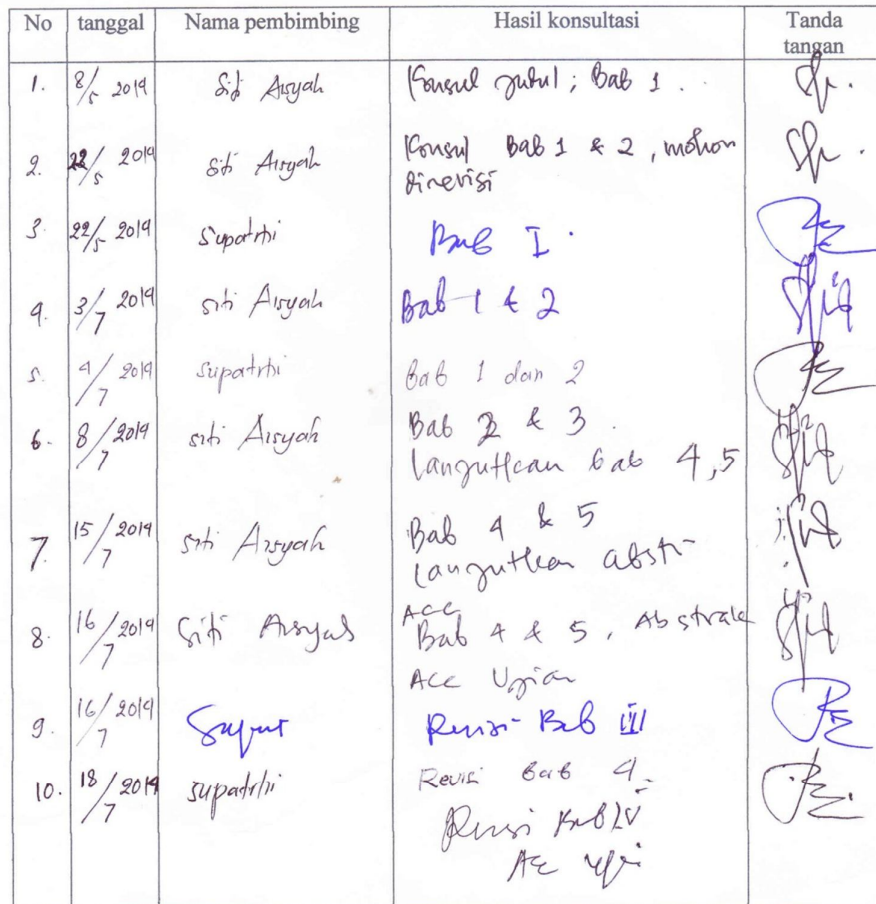 No tanggal Nama pembimbing Hasil konsultasi Tanda
tangan
1. 8/5 2019 Siti Aisyah Konsul judul ; Bab 1 .
2. 22/5 2019 Siti Aisyah Konsul Bab 1 & 2 , mohon
direvisi
3. 22/5 2019 Supatrhi Bab I .
4. 3/7 2019 siti Aisyah Bab 1 & 2
5. 4/7 2019 supatrhi Bab 1 dan 2
6. 8/7 2019 siti Aisyah Bab 2 & 3 .
lanjutkan bab 4,5
7. 15/7 2019 siti Aisyah Bab 4 & 5
lanjutkan abstr
8. 16/7 2019 Siti Aisyah ACC
Bab 4 & 5 , Abstrak
ACC Ujian
9. 16/7 2019 Revisi Bab III
10. 18/7 2019 supatrhi Revisi Bab 4
Revisi Bab IV